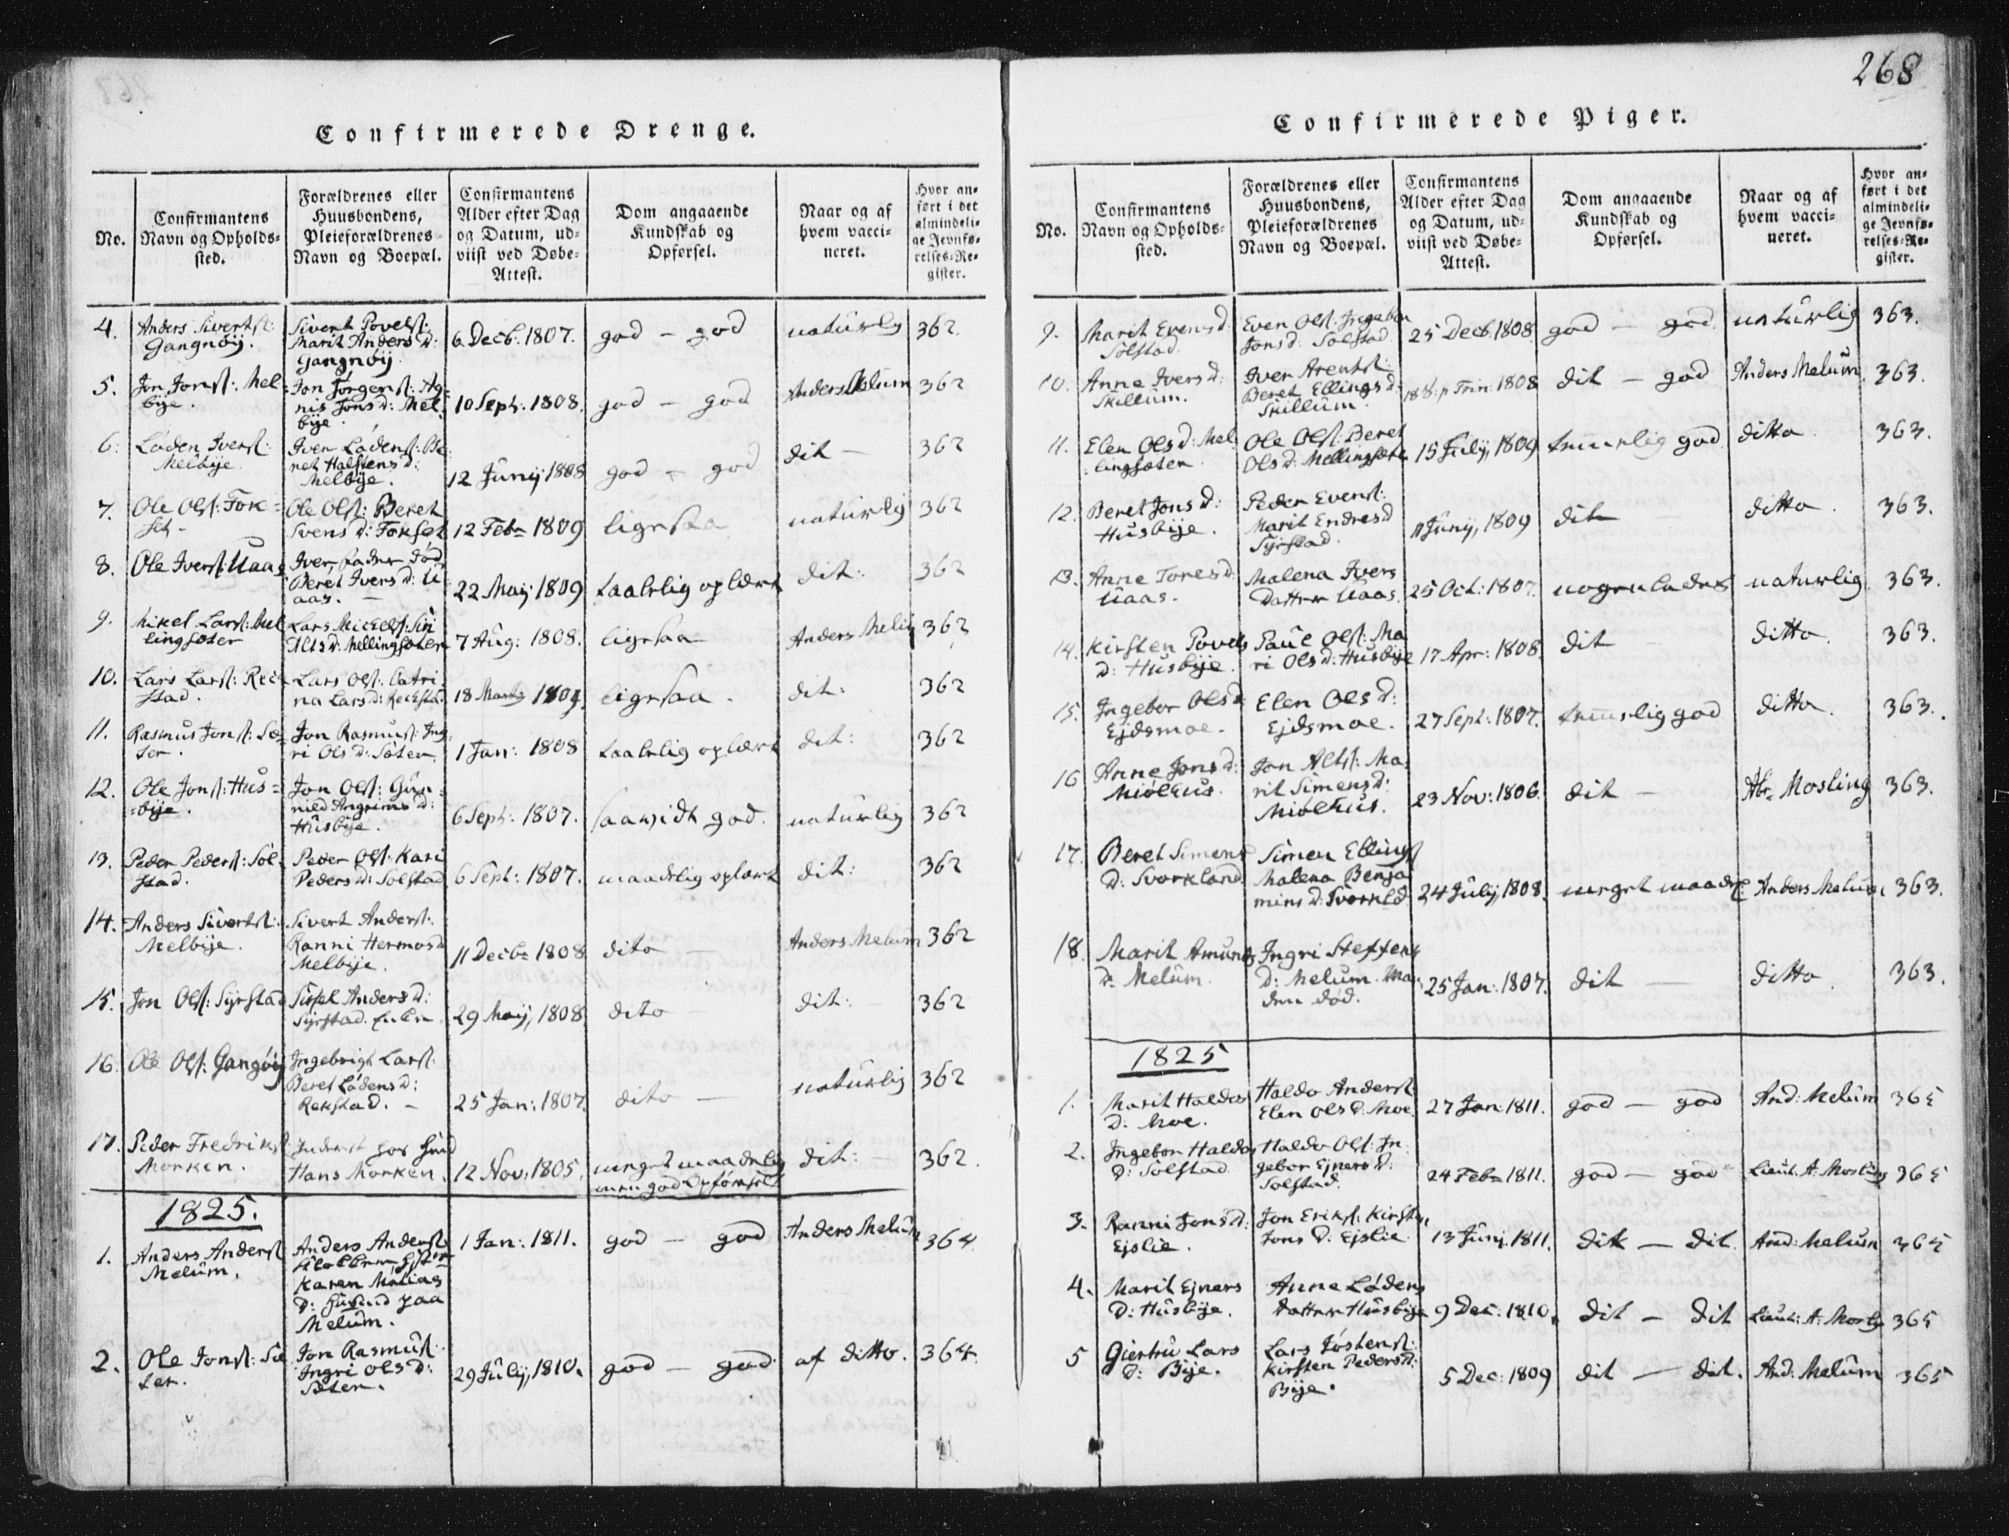 268
Confirmerede Drenge.
No.
Confirmantens
Navn og Opholds-
sted.
Forældrenes eller
Huusbondens,
Pleieforældrenes
Navn og Boepæl.
Confirmantens
Alder efter Dag
og Datum, ud-
viist ved Døbe-
Attest.
Dom angaaende
Kundskab og
Opførsel.
Naar og af
hvem vacci-
neret.
Hvor an-
ført i det
almindeli-
ge Jevnfø-
relses-Re-
gister.
4. Anders Sivertsl:
Gangnøij.
Sivert Povelsl:
Marit Anders D:
Gangnøij.
6 Decb: 1807. god - god naturlig 362.
5. Jon Jonsl: Mel-
bije.
Jon Jørgensl: Ag-
nis Jons d: Mel-
bije.
10 Sept: 1808. god - god Anders Melum 362
6. Løden Iversl:
Melbije
Iver Lødensl: Be-
ret Halstens d:
Melbije.
12 Junij 1808 god - god dit - 362
7. Ole Olsl: Fok-
set -
Ole Olsl: Beret
Svens d: Fokset
12 Febr 1809 ligesaa naturlig 362
8. Ole Iversl: Uaas
Iver fader død
Beret Ivers d: U-
aas. -
22 Maij 1809 taalelig oplært dit: 362
9. Mikel Larsl: Mel
lingsæter
Lars Mickelsl: Siri
Alts d: Mellingsæter
7 Aug: 1808. ligesaa Anders Melum 362
10. Lars Larsl: Rek
stad.
Lars Olsl: Catri
na Lars d: Rekstad
18 Marts 1809. ligesaa. dit: 362
11. Rasmus Jonsl: Sæ-
ter.
Jon Rasmusl: Ing-
ri Ols d: Sæter
1 Jan: 1808 taalelig oplært dit: 362
12. Ole Jonsl: Hus-
bije.
Jon Olsl: Gun-
nild Angrims d:
Husbije.
6 Sept: 1807. saavidt god. naturlig 362
13. Peder Pedersl: Sol-
stad.
Peder Olsl: Kari
Peders d: Solstad
6 Sept: 1807. maadelig oplært dit: 362
14. Anders Sivertsl:
Melbije.
Sivert Andersl:
Ranni Hermos d
Melbije.
11 Decbr 1808 dito - Anders Melum 362
15. Jon Olsl: Syrstad
Sissel Anders d:
Syrstad. Enke
29 Maij, 1808 dito - dit: - 362
16. Ole Olsl: Gangøij
Ingebrigt Larsl:
Beret Lødens d:
Rekstad. -
25 Jan: 1807. dito - naturlig 362
17. Peder Fredriksl
Morken.
Hans Morken.
12 Nov: 1805. meget maadelig
men god Opførsel
dit: - 362.
1825.
1. Anders Andersl
Melum.
Anders Andersl
Karen Matias
D: Husmd paa
Melum.
1 Jan: 1811. god - god Anders Melum 364
2. Ole Jonsl: Sæ
ter.
Jon Rasmusl:
Ingri Ols d:
Sæter.
29 Julij, 1810. god - god af ditto. 364.
Confirmerede Piger.
No.
Confirmantens
Navn og Opholds-
sted.
Forældrenes eller
Huusbondens,
Pleieforældrenes
Navn og Boepæl.
Confirmantens
Alder efter Dag
og Datum, ud-
viist ved Døbe-
Attest.
Dom angaaende
Kundskab og
Opførsel.
Naar og af
hvem vacci-
neret.
Hvor an-
ført i det
almindeli-
ge Jevnfø-
relses-Re-
gister.
9. Marit Evens d
Solstad.
Even Olsl: Ingebor
Jons d: Solstad
25 Decb. 1808. god - god naturlig 363.
10. Anne Ivers d:
Skillum.
Iver Arentsl:
Beret Ellings d:
Skillum.
18 S: p Trin: 1808 dit - god Anders Melum 363.
11. Elen Ols d: Mel
lingsæter
Ole Olsl: Beret
Ols d: Mellingsæter
15 Julij, 1809 temmelig god ditto 363.
12. Beret Jons d:
Husbije.
Peder Evensl:
Marit Endres d
Syrstad
11 Junij, 1809 dit ditto. 363.
13. Anne Tores d:
Uaas.
Malena Ivers
Datter Uaas
25 Oct: 1807. nogenledes naturlig 363.
14. Kirsten Povels
d: Husbije.
Paul Olsl: Ma
ri Ols d: Husbije
17 Apr: 1808. dit ditto. 363.
15. Ingebor Ols d
Ejdsmoe.
Elen Ols d:
Ejdsmoe.
27 Sept: 1807. temmelig god ditto. 363.
16 Anne Jons d:
Miølhus.
Jon Altsl: Ma-
rit Simens d:
Miølhus.
23 Nov: 1806. dit - Abr Mosling 363.
17. Beret Simens
D: Svorkland
Simen Ellingsl
Malena Benja
mins d: Svorkld
24 Julij, 1808. meget maadel: Anders Melum 363.
18. Marit Amunds
d: Melum.
Ingri Steffens
D: Melum. Man-
den død.
25 Jan: 1807. dit - ditto. 363.
1825
1. Marit Haldos
D: Moe.
Haldo Andersl
Elen Ols d: Moe
27 Jan: 1811. god - god And: Melum 365
2. Ingebor Haldos
D: Solstad
Haldo Olsl: In-
gebor Ejners d:
Solstad.
24 Febr 1811. god - god Lieut. A. Mosling 365
3. Ranni Jons d:
Ejslie.
Jon Eriksl: Kirsten
Jons d: Ejslie
13 Junj 1811. dit - dit And: Melum 365
4. Marit Ejners
D: Husbije.
Anne Lødens
datter Husbije
9 Dec: 1810. dit - dit Lieut: A: Mosling 365
5 Giertru Lars
D: Bije.
Lars Jøstensl:
Kirsten Peders d:
Bije.
5 Dec: 1809 dit - dit. And: Melum 365